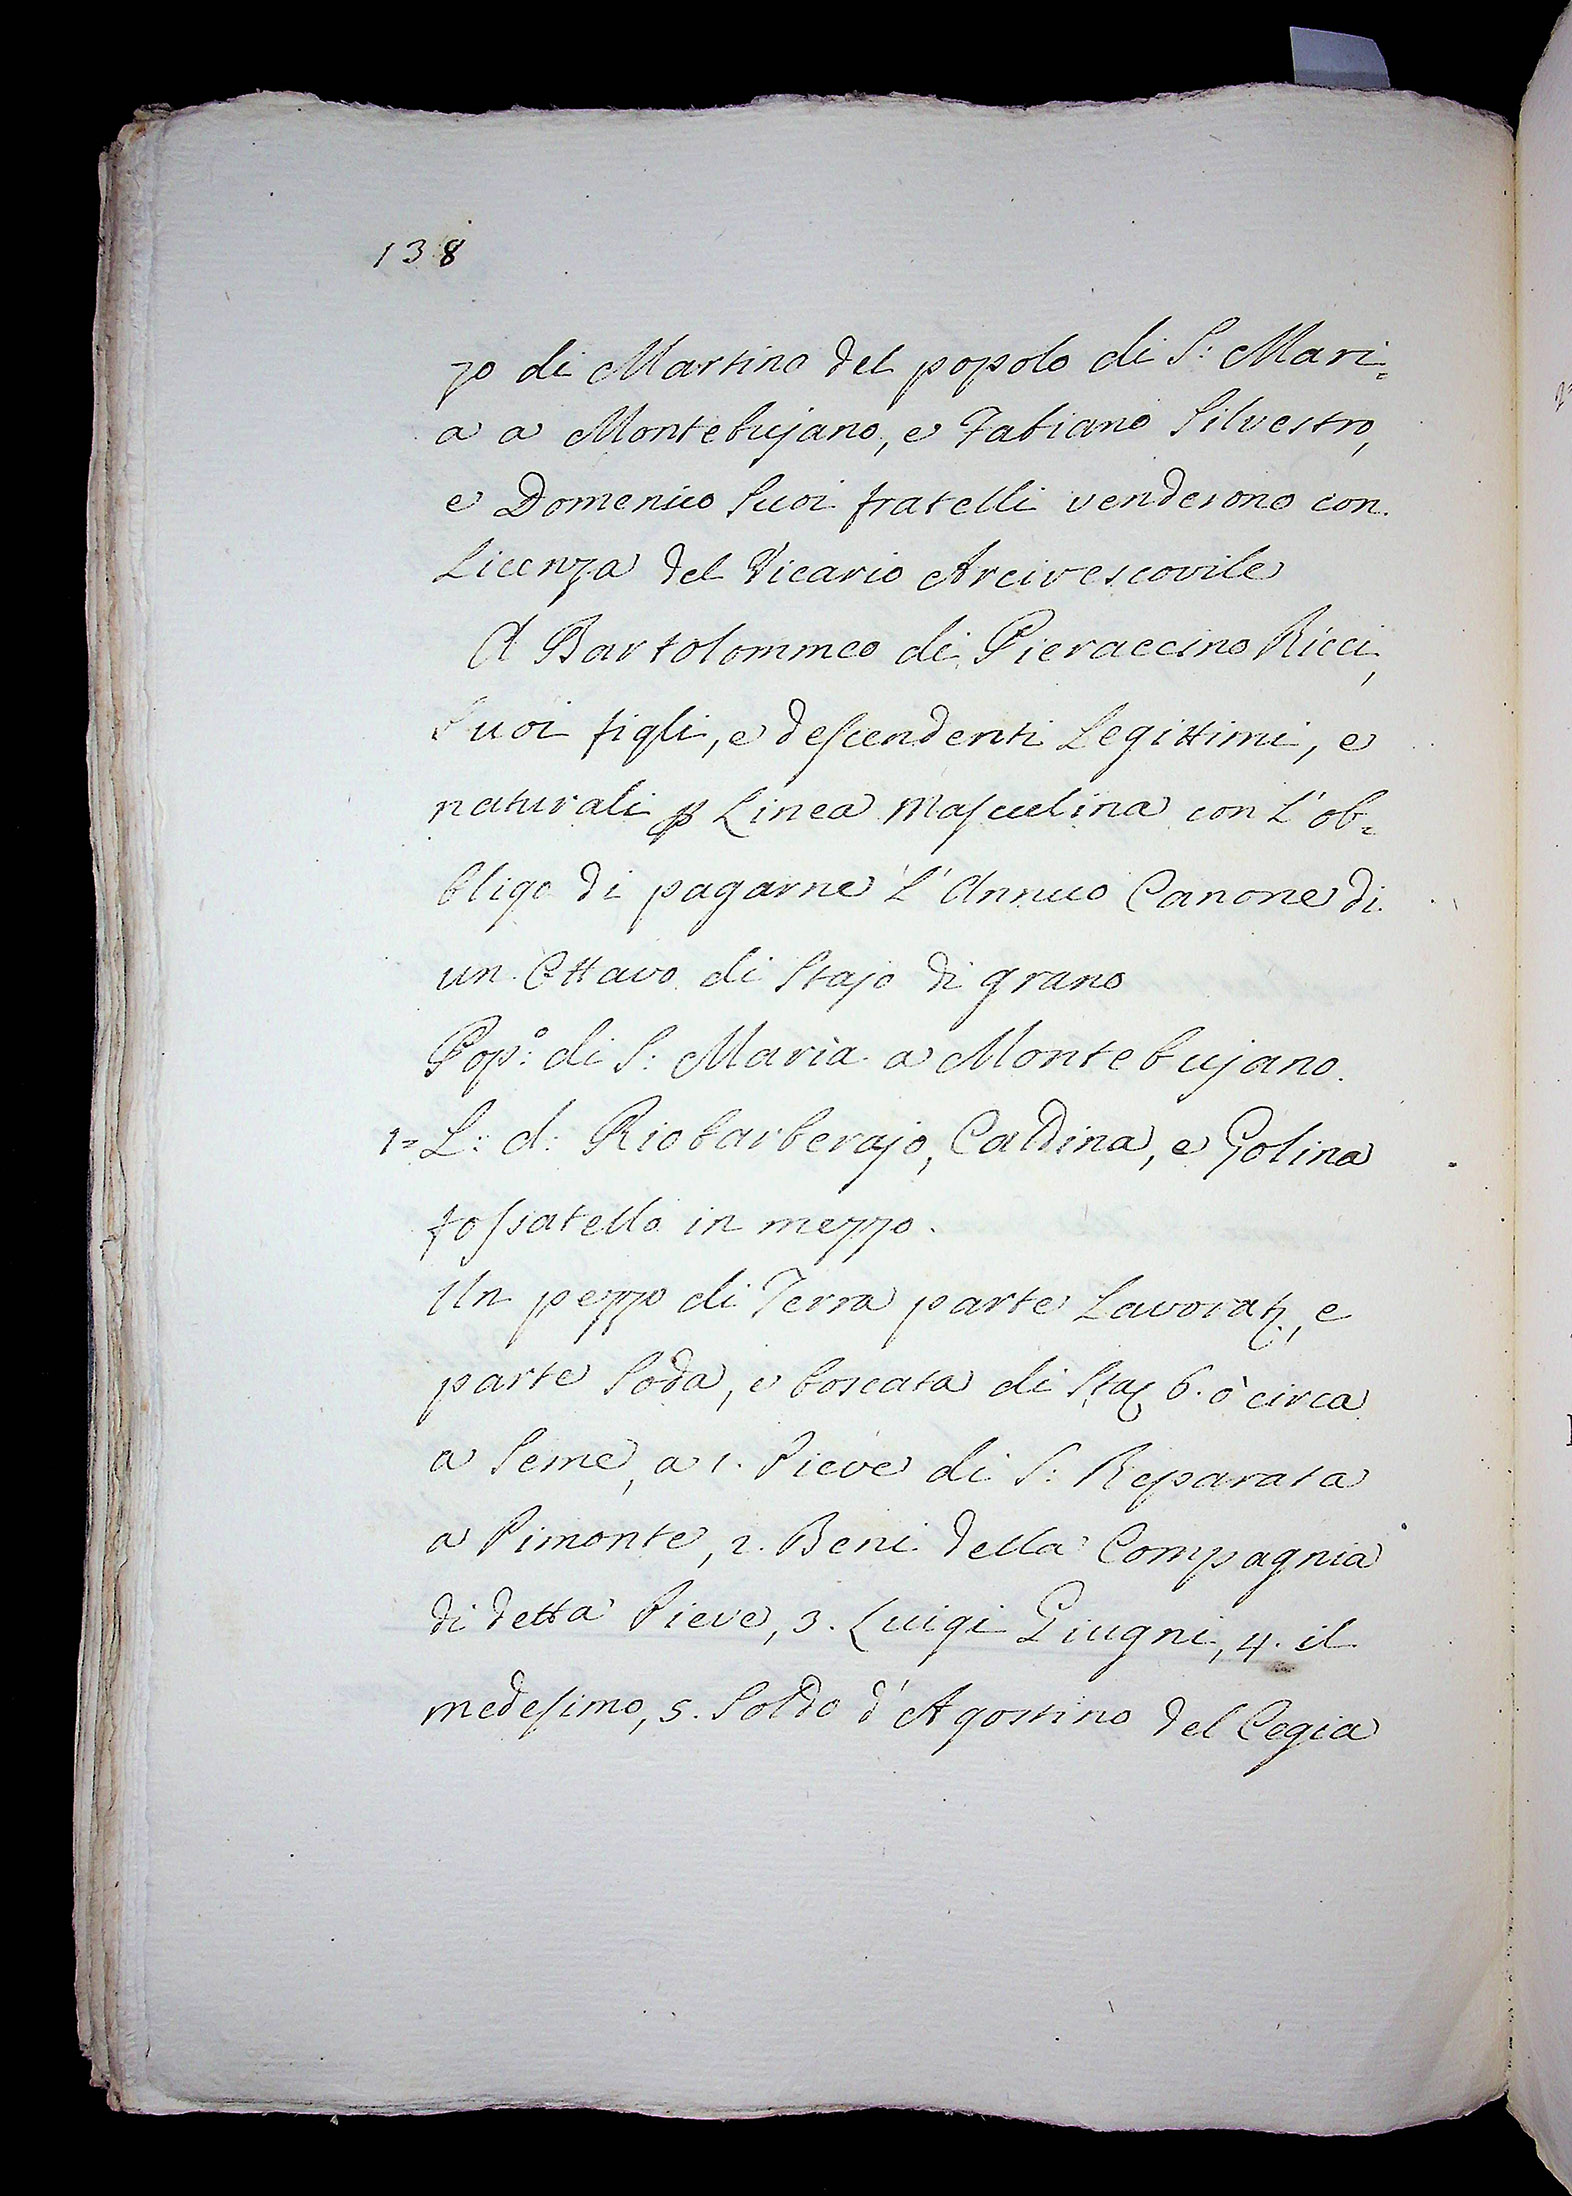 138
zo di Martino del popolo di S: Mari=
a a Montebujano, e Fabiano Silvestro,
e Domenico Suoi fratelli venderono con
Licenza del Vicario Arcivescovile
A Bartolommeo di Pieraccino Ricci,
Suoi figli, e descendenti Legittimi, e
naturali p Linea Masculina con L'ob=
bligo di pagarne L'Annuo Canone di
un Ottavo di Stajo di grano
Pop:º di S: Maria a Montebujano.
1= L: d: Riobarberajo, Caldina, e Golina
fossatello in mezzo.
Un pezzo di Terra parte Lavorat, e
parte Soda, e boscata di Staj 6. ò circa
a Seme, a 1. Pieve di S: Reparata
a Pimonte, 2. Beni della Compagnia
di detta Pieve, 3. Luigi Giugni, 4. il
medesimo, 5. Soldo d'Agostino del Cegia